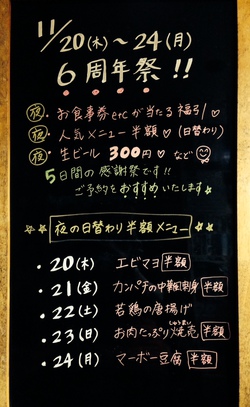 11/20(木)〜24(月)
6周年祭!!
夜・お食事券etcが当たる福引
夜・人気メニュー半額♡(日替わり)
夜・生ビール300円♡など
5日間の感謝祭です!!
ご予約をおすすめいたします☆
☆☆夜の日替わり半額メニュー☆☆
・20(木) エビマヨ 半額
・21(金) カンパチの中華風刺身 半額
・22(土) 若鶏の唐揚げ
・23(日) お肉たっぷり焼売 半額
しゅうまい
・24(月) マーボー豆腐 半額